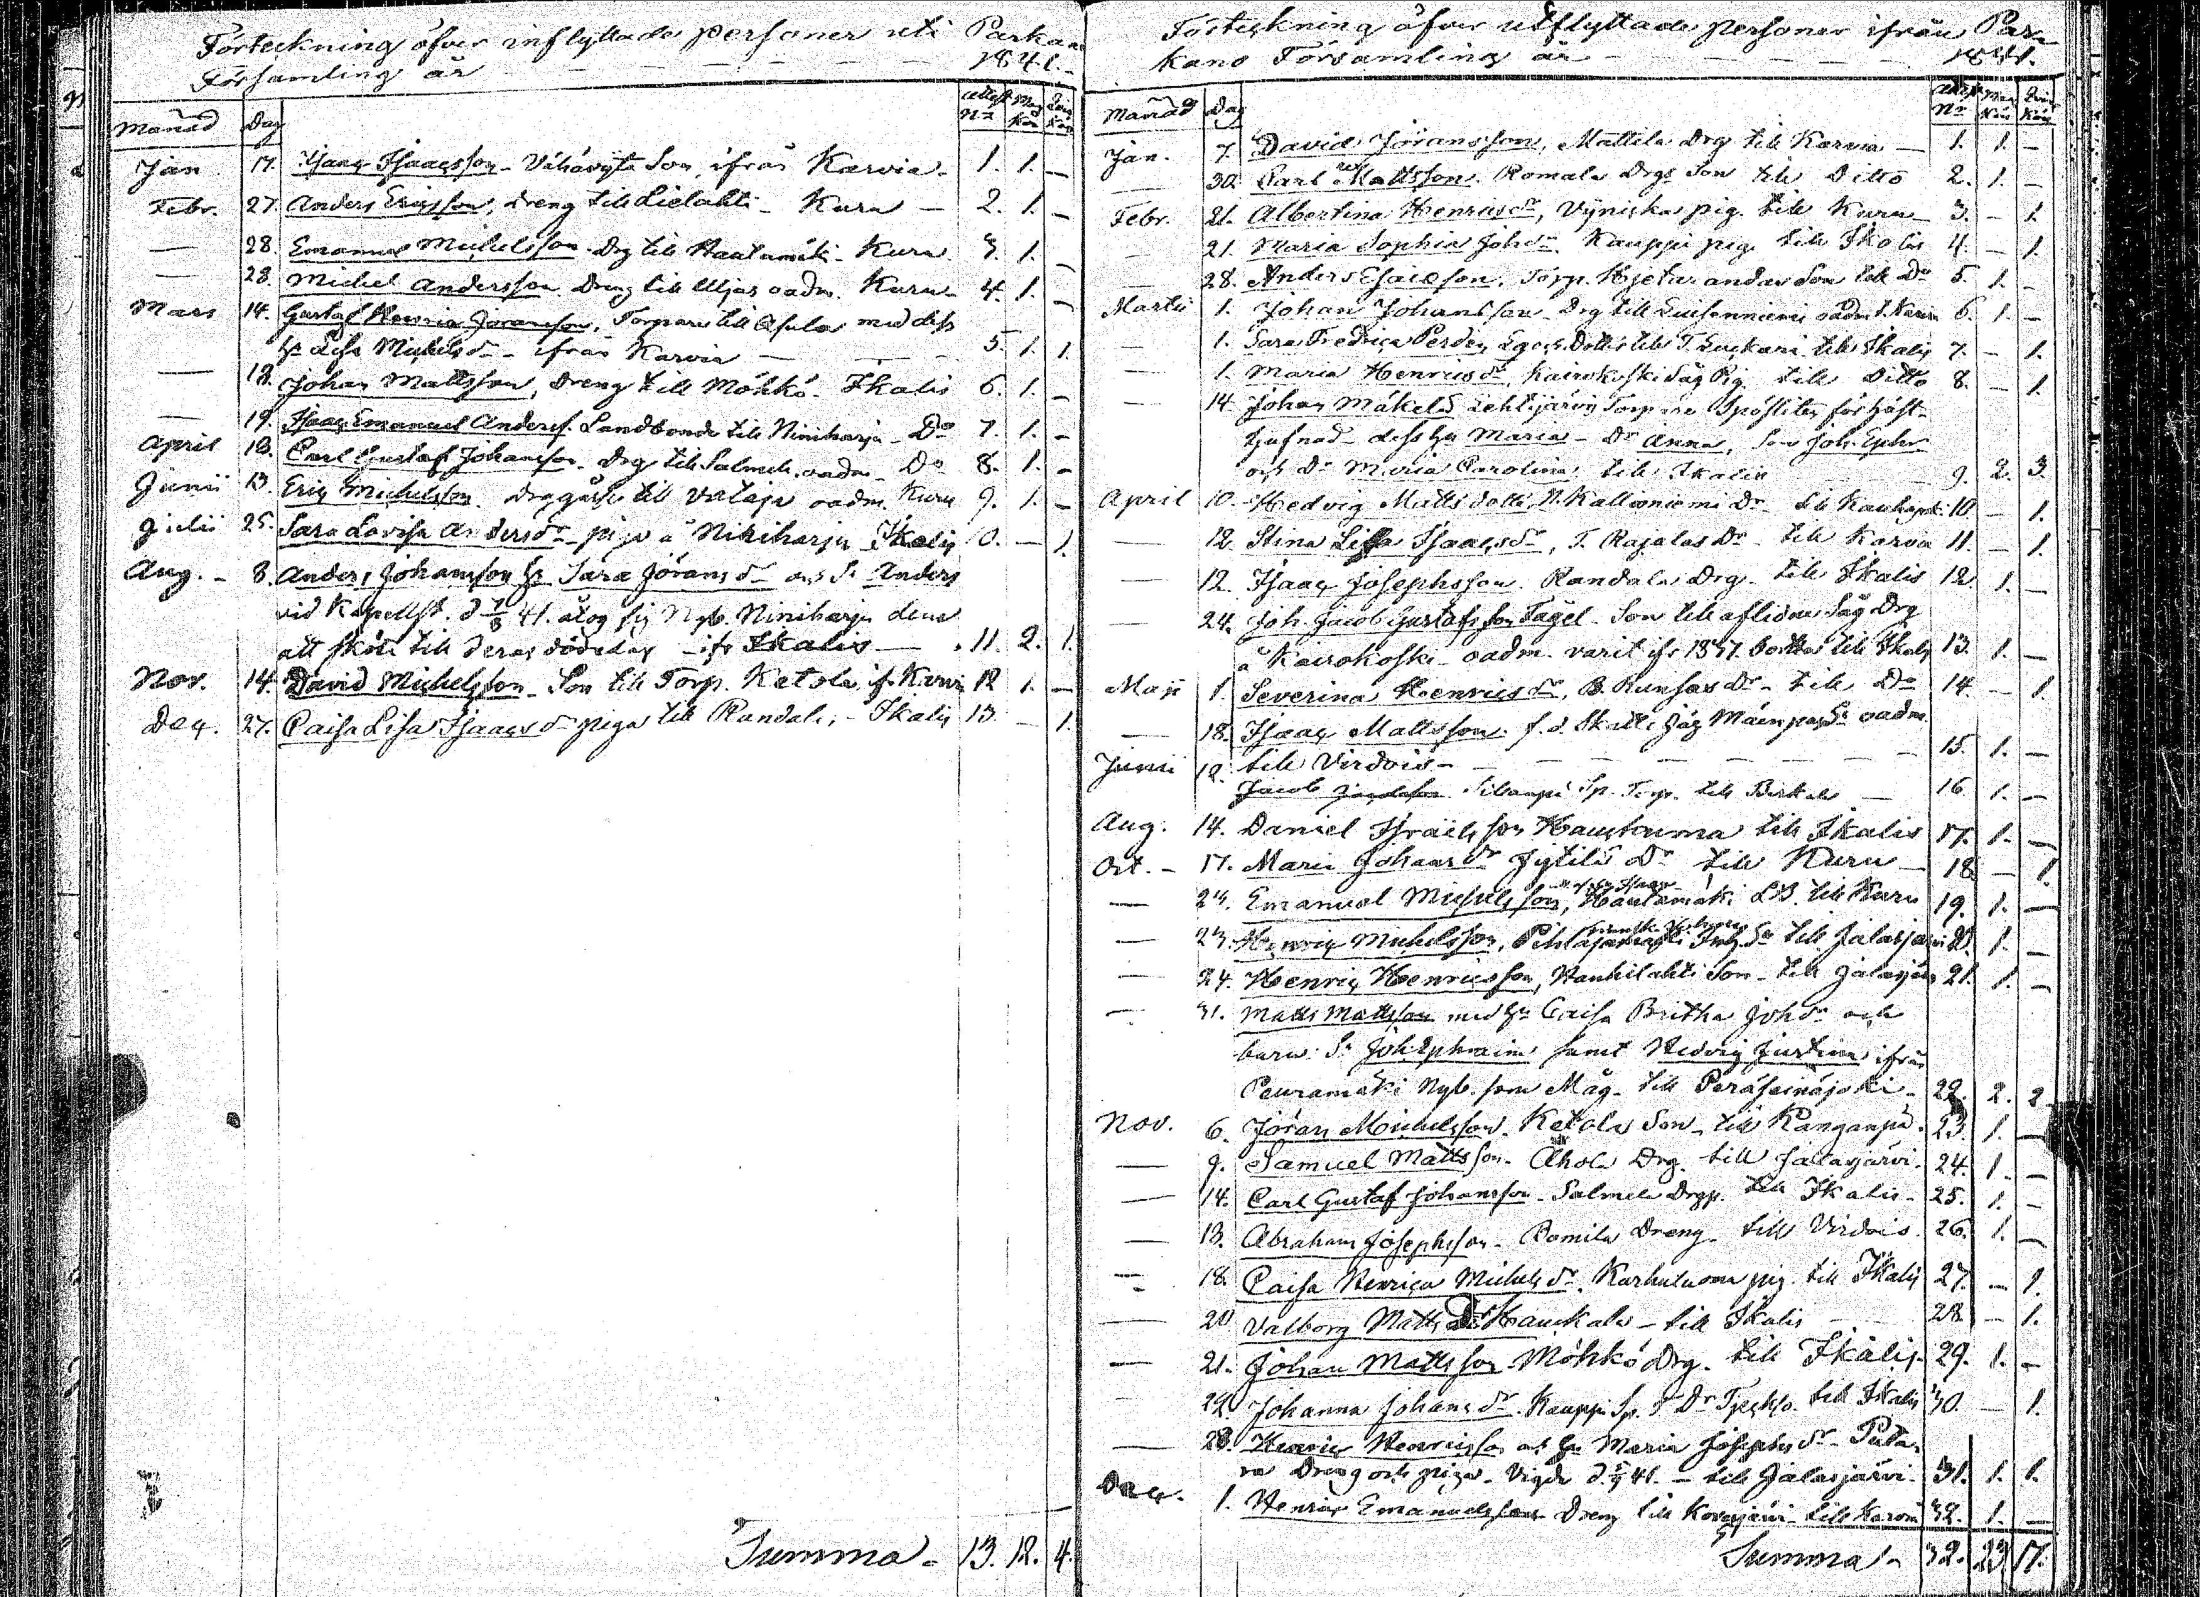 Förteckning öfver inflyttade personer uti Parkano
Församling år 1841.
Månad Dag Attest No Man Kön Qvin Kön
Jan 17. Isaac Isaacsson - Vihäviytä Son, ifrån Karvia - 1. 1. -
Febr. 27. Anders Ericsson, Dreng till Lielahti - Kuru - 2. 1. -
— 28. Emanuel Michelsson Drg till Hautamäki - Kuru 3. 1. -
— 28. Michel Andersson Dreng till oadm. Kuru - 4. 1. -
Mars 14. Gustaf Henric Jöransson, Torpare till med dess
Hu Lisa Michelsdr - ifrån Karvia — 5. 1. 1.
— 18. Johan Mattsson, Dreng till Möhkö - Ikalis 6. 1. -
— 19. Isaac Emanuel Anderss. Landbonde till Niniharju - Do 7. 1. -
April 13. Carl Gustaf Johansson Drg till Salmela oadm. Do 8. 1. -
Junii 13. Eric Michelsson till Vataja oadm. Kuru 9. 1. -
Julii 25. Sara Lovisa Andersdr - piga å Niniharju Ikalis 10. - 1.
Aug. - 8. Anders Johansson Hu Sara Jöransdr och Sr Anders
vid d 1/8 41. åtog sig Nyb. Niniharju dem
att sköta till deras dödedag - ifr Ikalis — 11. 2. 1.
Nov. 14. David Michelsson - Son till Torp. Ketola, if. Karvia 12 1. -
Dec. 27. Caisa Lisa Isaacsdr piga till Randala, - Ikalis 13 - 1.
Summa - 13. 12. 4.
Förteckning öfver utflyttade personer ifrån Par-
kano Församling år 1841.
Månad Dag Attest No Man Kön Qvin Kön
Jan. 7. David Jöransson, Mattila Drg till Karvia — 1. 1. -
— 30. Carl Mattsson. Romala Drgs Son till Ditto 2. 1. -
Febr. 21. Albertina Henricsdr, pig. till Kuru - 3. - 1.
— 21. Maria Sophia Johdr Kauppi pig. till Ikalis 4. - 1.
— 28. Anders Esaiesson. Torp. Son till Do 5. 1. -
Martii 1. Johan Johansson - Drg till oadm. t. Karvia 6. 1. -
— 1. Sara Fredrica till Ikalis 7. - 1.
— 1. Maria Henricsdr, Kairokoski Såg Pig. till Ditto 8. - 1.
— 14. Johan Mäkelä Lehtijärvi Torpare
tjufnad - dess hu Maria - Dr Anna, Son Joh. Ephr
och Dr Maria Carolina till Ikalis 9. 2. 3.
April 10. Hedvig Matts dotter N. Kallioniemi Dr - till 10 - 1.
— 12. Stina Lisa Isaacsdr, T. Rajalas Dr - till Karvia 11. - 1.
— 12. Isaac Josephsson. Randala Drg. till Ikalis 12. 1. -
— 24. Joh. Jacob Gustafsson Fagel. Son till aflidne Såg Drg
å Kairokoski - oadm. varit ifr 1837. borta till Ikalis 13. 1. -
Maji 1. Severina Henricsdr, Dr - till Do 14. - 1.
— 18. Isaac Mattsson. f.d. oadm.
till Virdois - 15. 1. -
Junii 12. Jacob Sp. Torp. till Birkala — 16. 1. -
Aug. 14. Daniel Israelsson till Ikalis 17. 1. -
Oct. - 17. Maria Johansdr Jytilä Dr till Kuru — 18 - 1.
— 24. Emanuel Michelsson, Hautamäki LB. till Kuru 19. 1. -
— 23. Henric Michelsson, till Jalasjärvi 20. 1. -
— 24. Henric Henricsson, Vanhilahti Son - till Jalasjärvi 21. 1. -
— 31. Matts Mattsson med Hu Caisa Britha Johdr och
barn Sr Joh. Ephraim samt Hedvig Justina ifrån
Peuramäki Nyb. som Måg - till Peräseinäjoki - 22. 2. 2.
Nov. 6. Jöran Michelsson. Ketola Son - till Kanganpä. 23. 1. -
— 9. Samuel Mattsson - Ahola Drg. till Jalasjärvi. 24. 1. -
— 14. Carl Gustaf Johansson - Salmela till Ikalis - 25. 1. -
— 13. Abraham Josephsson - Romila Dreng - till Virdois. 26. 1. -
— 18. Caisa Henrica Michelsdr. Karhuluoma pig. till Ikalis 27. - 1.
— 20 Valborg Matts Dr Haukala - till Ikalis — 28 - 1.
— 21. Johan Mattsson Möhkö Drg. till Ikalis. 29. 1. -
22. Johanna Johansdr. Kauppi till Ikalis 30. - 1.
— 28. Henric Henricsson och hu Maria Josephsdr -
Dreng och piga - Vigde 41. - till Jalasjärvi - 31. 1. 1.
Dec. 1. Henric Emanuelsson Dreng till Kovesjärvi - till Karvia 32. 1. -
Summa - 32. 23 17.